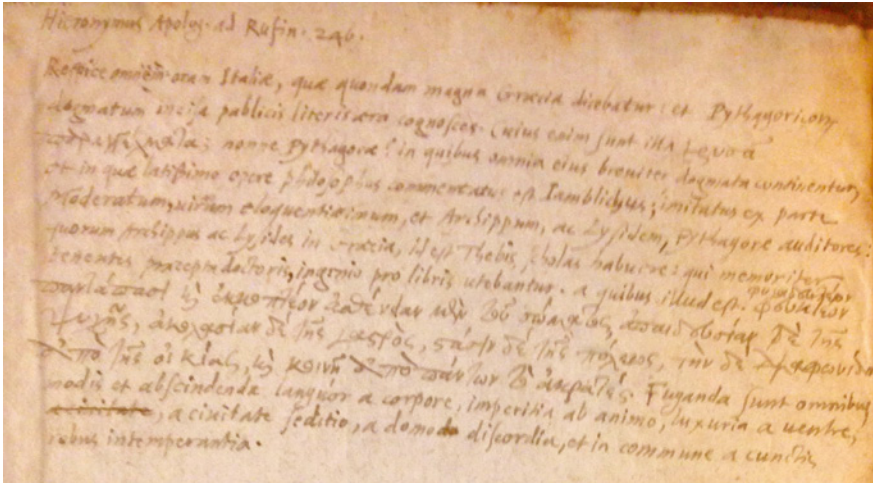 Hieronymus Apolog. ad Rufin. 246.
Respice omnem oram Italiæ, quæ quondam magna Græcia dicebatur: et Pythagoricorum
dogmatum incisa publicis literis æra cognosces. Cuius enim sunt illa χρυσᾶ
παραγγέλματα; nonne Pythagoræ? in quibus omnia eius breviter dogmata continentur,
et in quæ latissimo opere philosophus commentatus est Iamblichus; imitatus ex parte
Moderatum, uirum eloquentissimum, et Archippum, ac Lysidem, Pythagoræ auditores:
quorum Archippus ac Lysides in Græcia, id est Thebis, scholas habuere: qui memoriter
tenentes præcepta doctoris, ingenio pro libris utebantur. a quibus illud est. φυγαδευτέον
παντάπασι καὶ ἐκκοπτέον ἀσθένειαν μὲν τοῦ σώματος, ἀπαιδευσίαν δὲ τῆς
ψυχῆς, ἀκολασίαν δὲ τῆς γαστρὸς, στάσιν δὲ τῆς πόλεως, τὴν δὲ διαφωνίαν
ἀπὸ τῆς οἰκίας, καὶ κοινῇ ἀπὸ πάντων τὸ ἀκρατές. Fuganda sunt omnibus
modis et abscindenda languor a corpore, imperitia ab animo, luxuria a uentre,
a ciuitate seditio, a domo discordia, et in commune a cunctis
rebus intemperantia.